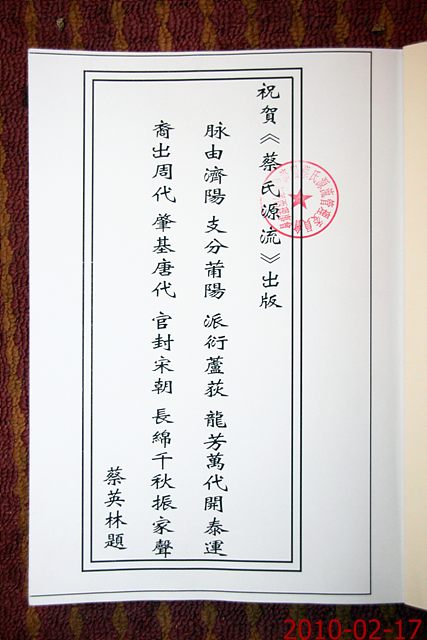 祝賀《蔡氏源流》出版
脉由濟陽 支分莆陽 派衍蘆荻 龍芳萬代開泰運
裔出周代 肇基唐代 官封宋朝 長綿千秋振家聲
蔡英林題
2010-02-17